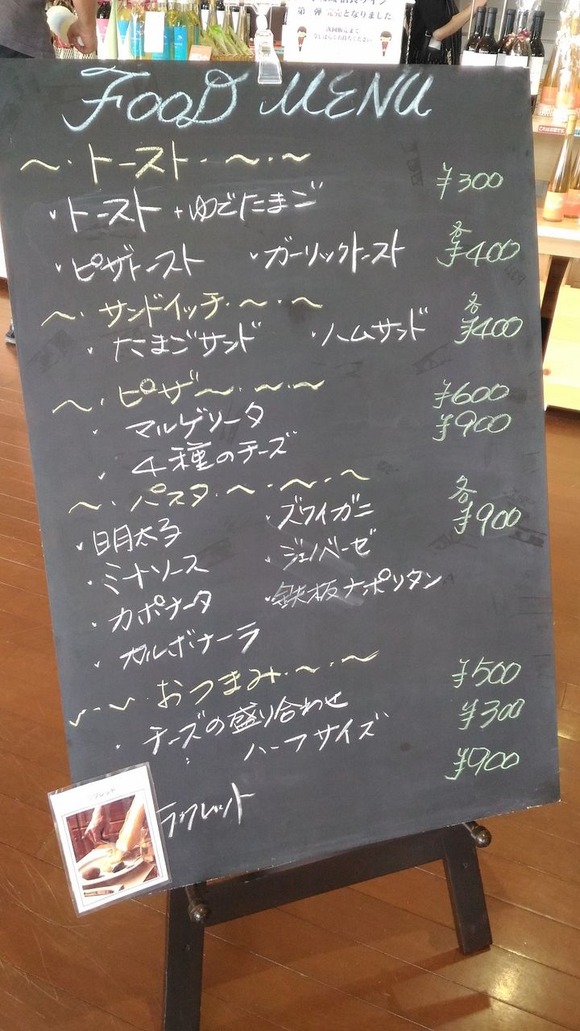 第一弾 完売となりました
FOOD MENU
〜・トースト・〜・〜
・トースト+ゆでたまご ¥300
・ピザトースト ・ガーリックトースト 各¥400
〜・サンドイッチ・〜・〜
・たまごサンド ・ハムサンド 各¥400
〜・ピザ〜・〜・〜
・マルゲリータ ¥600
・4種のチーズ ¥900
〜・パスタ・〜・〜・〜
・明太子 ・ズワイガニ 各¥900
・ミートソース ・ジェノベーゼ
・カポナータ ・鉄板ナポリタン
・カルボナーラ
〜・〜・おつまみ・〜・〜
・チーズの盛り合わせ ¥500
: ハーフサイズ ¥300
ラクレット ¥900